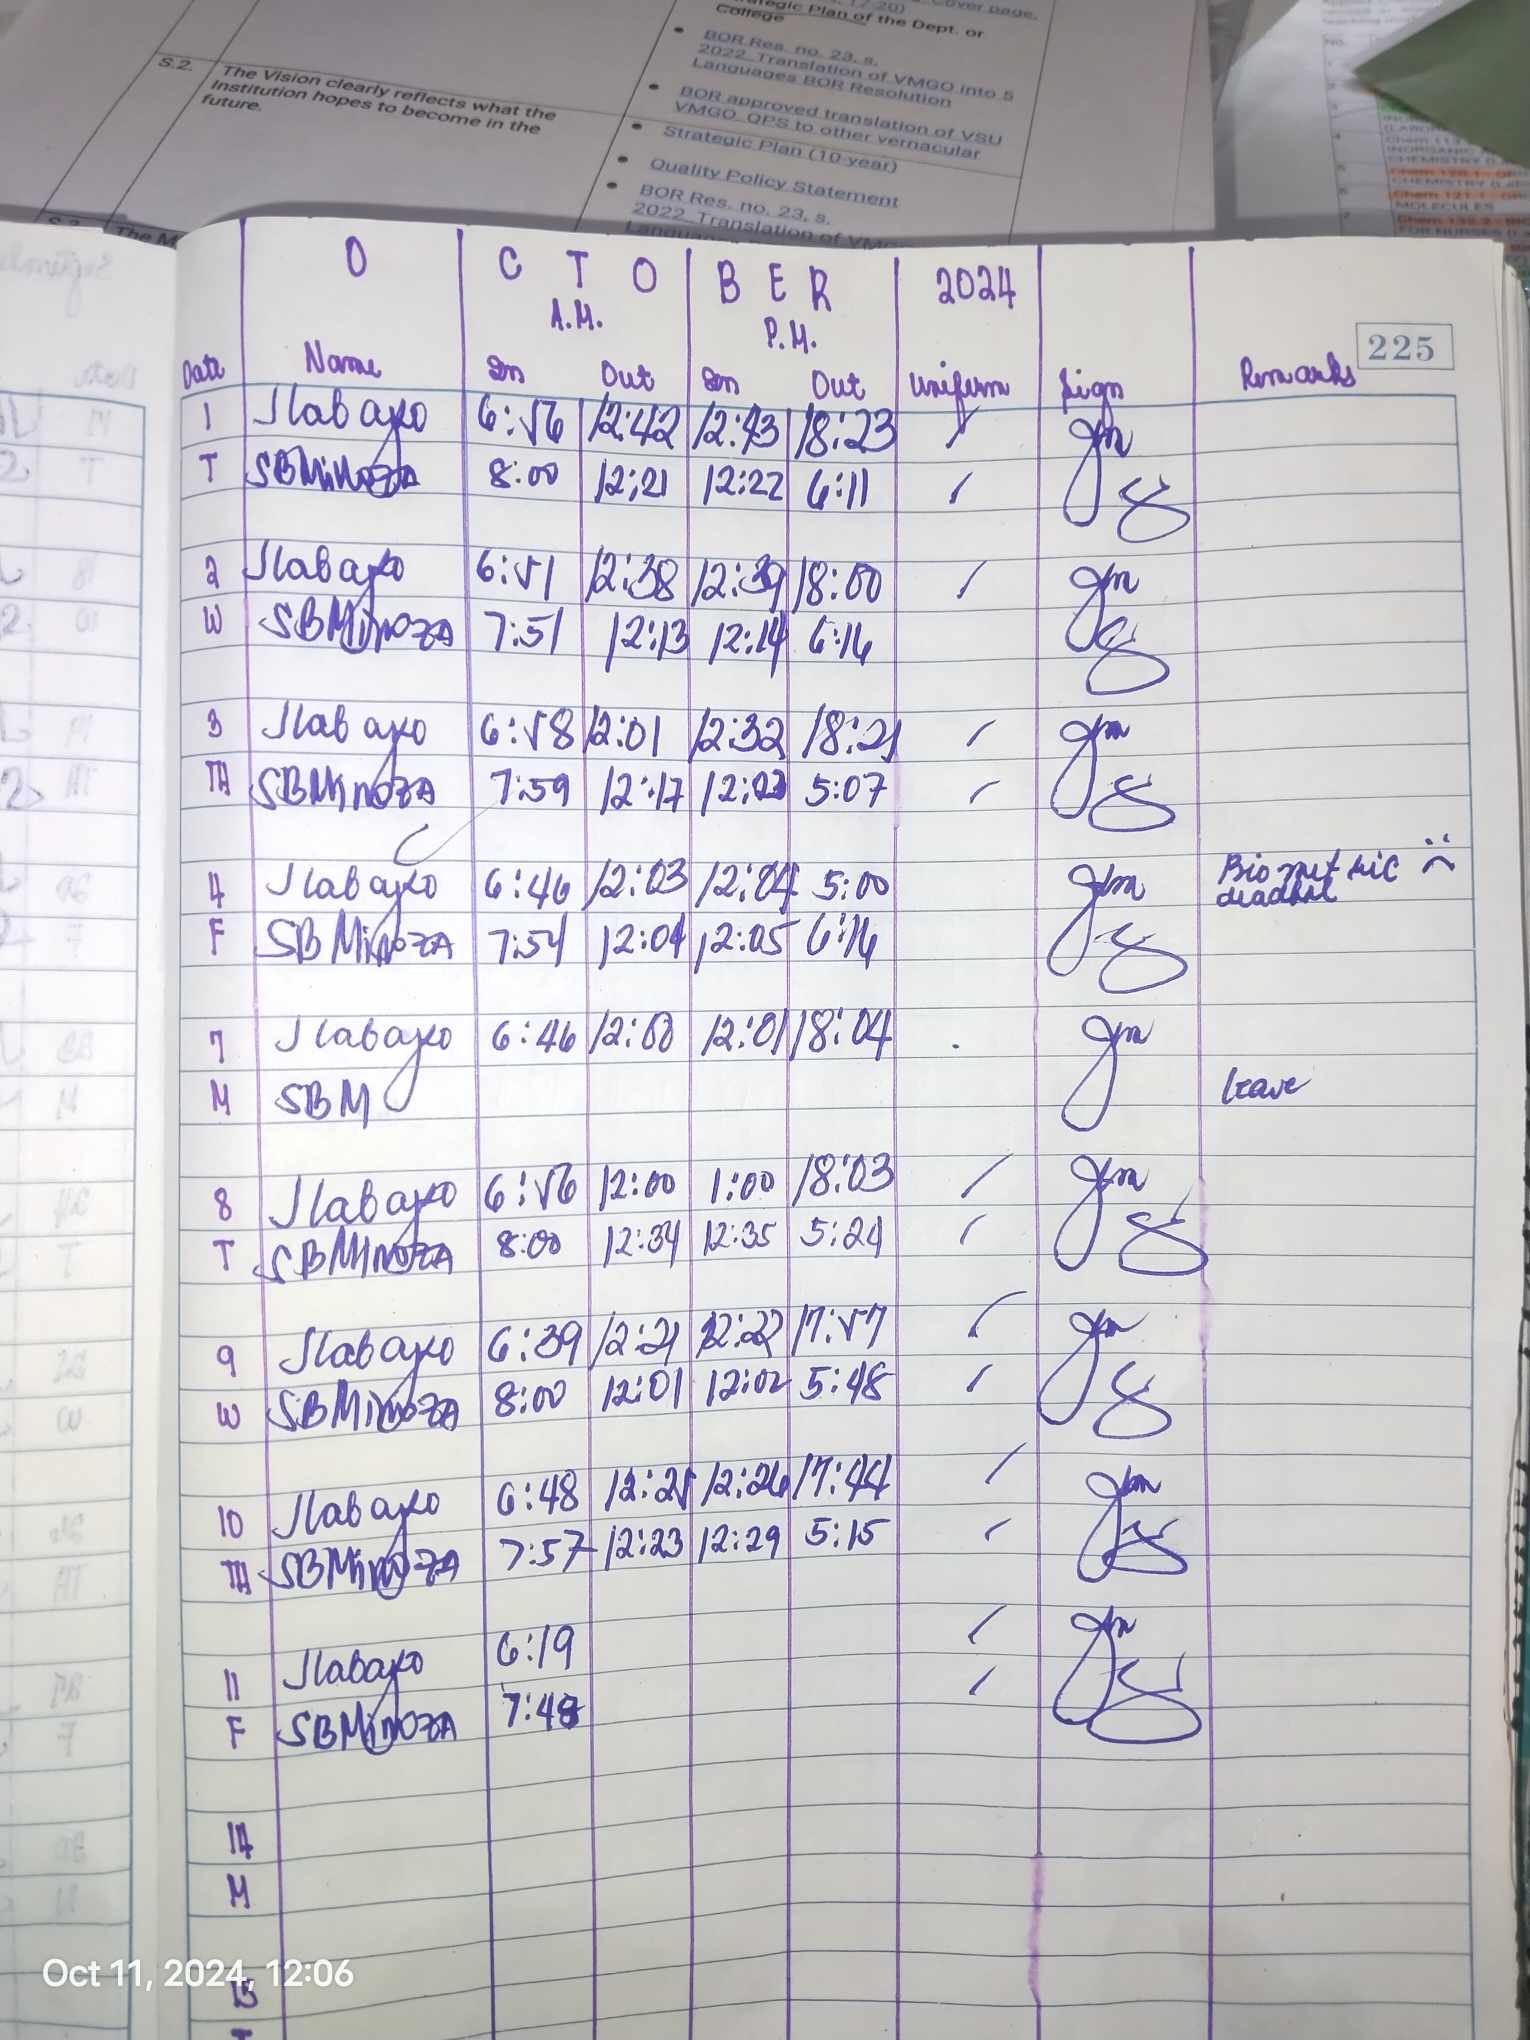 Cover page,
Strategic Plan of the Dept. or
College
BOR Res. no. 23, s.
2022_Translation of VMGO into 5
Languages BOR Resolution
BOR approved translation of VSU
VMGO_QPS to other vernacular
Strategic Plan (10-year)
Quality Policy Statement
BOR Res. no. 23, s.
2022_Translation of VMGO
S.2. The Vision clearly reflects what the
Institution hopes to become in the
future.
The
O C T O B E R 2024
A.M. P.M.
225
Date Name In Out In Out Uniform Sign Remarks
1 Jlabayo 6:56 12:42 12:43 18:23
T SBMinoza 8:00 12:21 12:22 6:11
2 Jlabayo 6:51 12:38 12:39 18:00
W SBMinoza 7:51 12:13 12:14 6:16
3 Jlabayo 6:58 12:01 12:32 18:21
TH SBMinoza 7:59 12:17 5:07
4 Jlabayo 6:46 12:03 12:04 5:00 Biometric
F SBMinoza 7:54 12:04 12:05 6:16
7 Jlabayo 6:46 12:00 12:01 18:04
M SBM leave
8 Jlabayo 6:56 12:00 1:00 18:03
T SBMinoza 8:00 12:34 12:35 5:24
9 Jlabayo 6:39 12:21 12:22 17:57
W SBMinoza 8:00 12:01 12:02 5:48
10 Jlabayo 6:48 12:25 12:26 17:44
TH SBMinoza 7:57 12:23 12:29 5:15
11 Jlabayo 6:19
F SBMinoza 7:48
14
M
15
T
Oct 11, 2024, 12:06